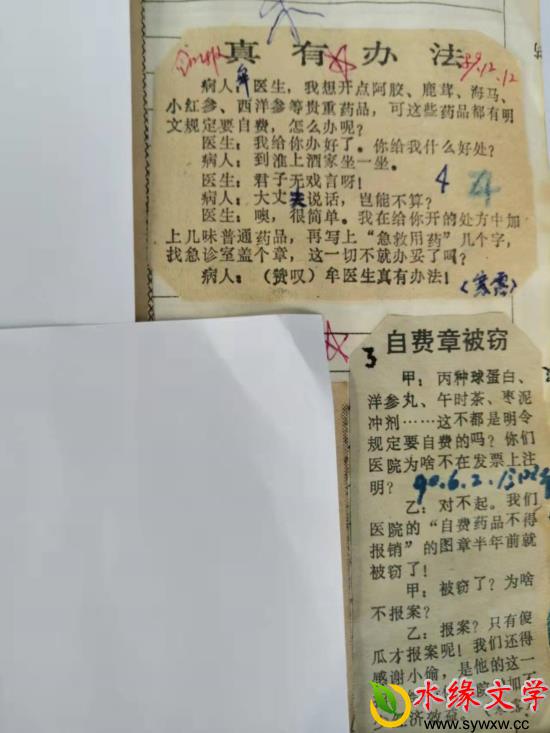 真有办法
89.12.12
病人：牟医生，我想开点阿胶、鹿茸、海马、
小红参、西洋参等贵重药品，可这些药品都有明
文规定要自费，怎么办呢？
医生：我给你办好了。你给我什么好处？
病人：到淮上酒家坐一坐。
医生：君子无戏言呀！
4
病人：大丈夫说话，岂能不算？
医生：噢，很简单。我在给你开的处方中加
上几味普通药品，再写上“急救用药”几个字，
找急诊室盖个章，这一切不就办妥了吗？
病人：（赞叹）牟医生真有办法！
3
自费章被窃
甲：丙种球蛋白、
洋参丸、午时茶、枣泥
冲剂……这不都是明令
规定要自费的吗？你们
医院为啥不在发票上注
明？
90.6.2.
乙：对不起。我们
医院的“自费药品不得
报销”的图章半年前就
被窃了！
甲：被窃了？为啥
不报案？
乙：报案？只有傻
瓜才报案呢！我们还得
感谢小偷，是他的这一
水缘文学
www.sywxw.com